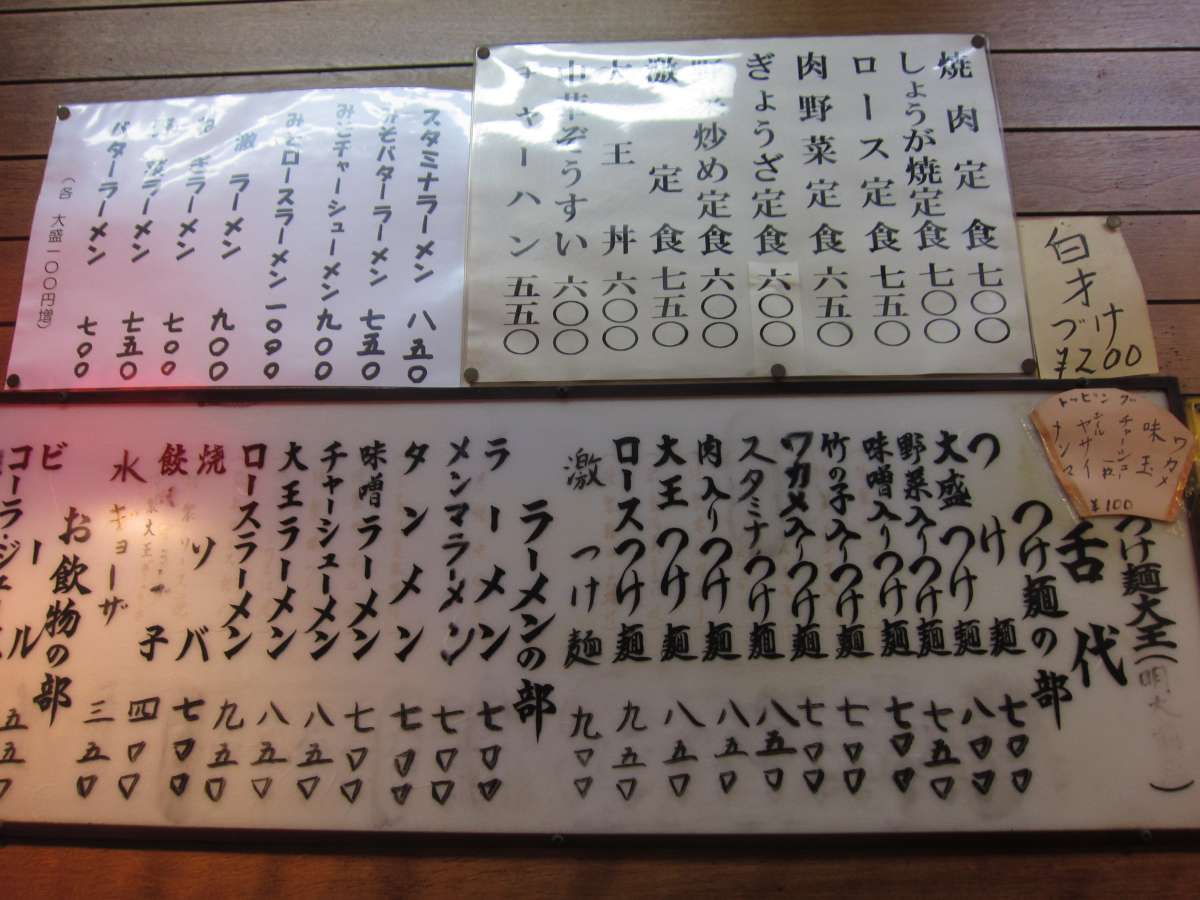 焼肉定食 七〇〇
しょうが焼定食 七〇〇
ロース定食 七五〇
肉野菜定食 六五〇
ぎょうざ定食 六〇〇
野菜炒め定食 六〇〇
激定食 七五〇
大王丼 六〇〇
中華ぞうすい 六〇〇
チャーハン 五五〇
スタミナラーメン 八五〇
みそバターラーメン 七五〇
みそチャーシューメン 九〇〇
みそロースラーメン 一〇〇〇
激ラーメン 九〇〇
ねぎラーメン 七〇〇
野菜ラーメン 七五〇
バターラーメン 七〇〇
(各 大盛一〇〇円増)
白才
づけ
¥200
トッピング
ワカメ
味玉
チャーシュー
ヤサイ
¥100
つけ麺大王(明大 )
舌代
つけ麺の部
つけ麺 七〇〇
大盛つけ麺 八〇〇
野菜入りつけ麺 七五〇
味噌入りつけ麺 七〇〇
竹の子入りつけ麺 七〇〇
ワカメ入りつけ麺 七〇〇
スタミナつけ麺 八五〇
肉入りつけ麺 八五〇
大王つけ麺 八五〇
ロースつけ麺 九五〇
激つけ麺 九〇〇
ラーメンの部
ラーメン 七〇〇
メンマラーメン 七〇〇
タンメン 七〇〇
味噌ラーメン 七〇〇
チャーシューメン 八五〇
大王ラーメン 八五〇
ロースラーメン 九五〇
焼ソバ 七〇〇
餃子 四〇〇
水ギョーザ 三五〇
お飲物の部
ビール 五五〇
コーラ・ジュース